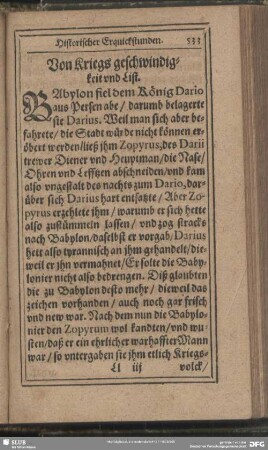 Historischer Erquickstunden. 533
Von Kriegs geschwindig-
keit vnd List.
BAbylon fiel dem König Dario
aus Persen abe / darumb belagerte
sie Darius. Weil man sich aber be-
fahrete / die Stadt würde nicht können er-
öbert werden / ließ ihm Zopyrus, des Darii
trewer Diener vnd Heuptman / die Nase /
Ohren vnd Lefftzen abschneiden / vnd kam
also vngestalt des nachts zum Dario, dar-
über sich Darius hart entsatzte / Aber Zo-
pyrus erzehlete ihm / warumb er sich hette
also zustümmeln lassen / vnd zog stracks
nach Babylon / daselbst er vorgab / Darius
hett also tyrannisch an ihm gehandelt / die-
weil er ihn vermahnet / Er solte die Baby-
lonier nicht also bedrengen. Diß glaubten
die zu Babylon desto mehr / dieweil das
zeichen vorhanden / auch noch gar frisch
vnd new war. Nach dem nun die Babylo-
nier den Zopyrum wol kandten / vnd wu-
sten / daß er ein ehrlicher warhaffter Mann
war / so vntergaben sie ihm etlich Kriegs-
Ll iij volck /
SLUB
DFG